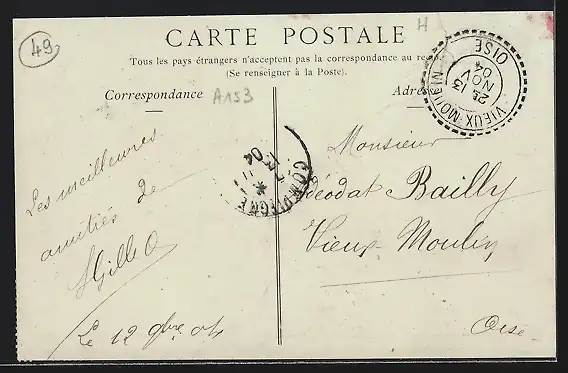 49
H
CARTE POSTALE
Tous les pays étrangers n'acceptent pas la correspondance au
(Se renseigner à la Poste).
Correspondance
A153
VIEUX-MOULIN
OISE
2E
13
NOV
04
COMPIEGNE
04
Les meilleures
amitiés de
Le 12 9bre 04
Monsieur
Déodat Bailly
Vieux-Moulin
Oise